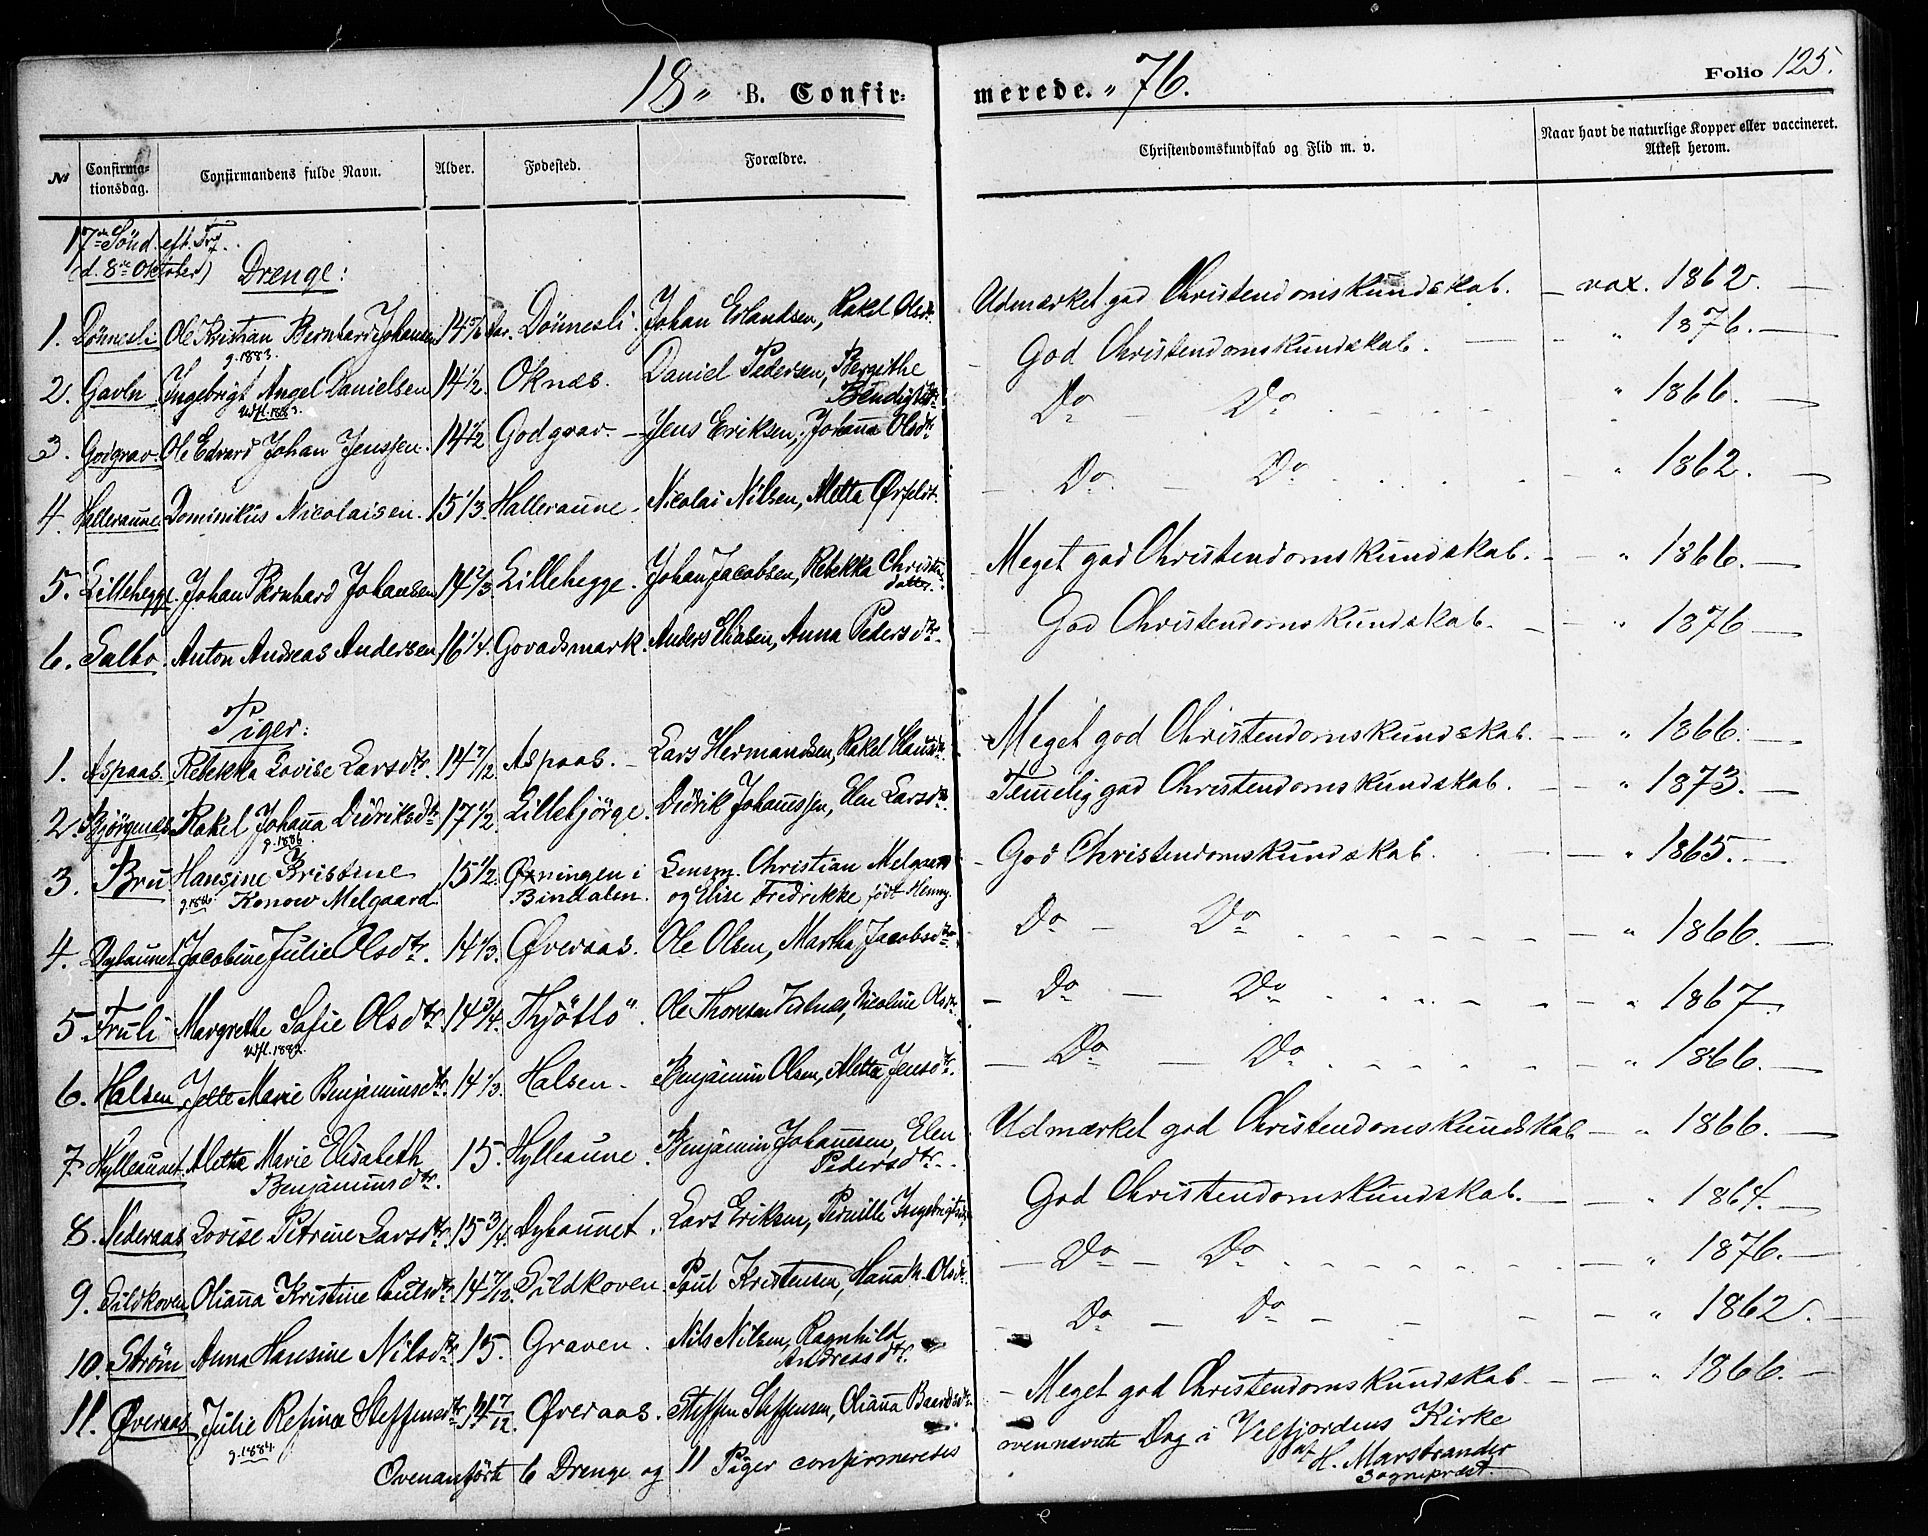 18 " B. Confir-
merede. " 76.
Folio 125.
No
Confirma-
tionsdag.
Confirmandens fulde Navn.
Alder.
Fødested.
Forældre.
Christendomskundskab og Flid m. v.
Naar havt de naturlige Kopper eller vaccineret.
Attest herom.
17de Sönd. eft. Tref.
(d. 8de Oktober)
Drenge:
1. Dönnesli Ole Kristian Bernhard Johansen 14 5/6 Aar. Dönnesli. Johan Erlandsen, Rakel Olsdr. Udmærket god Christendomskundskab. — vax. 1862. —
g. 1883.
2. Gavln Ingebrigt Angel Danielsen 14 1/2. Oknæs. Daniel Pedersen, Bergithe God Christendomskundskab. — " 1876. —
Bendigtsdr.
Utfl. 1883.
3. Godgrav. Ole Edvard Johan Jenssen. 14 1/2 Godgrav. — Jens Eriksen, Johanna Olsdr. Do — Do " 1866. —
4. Halleraune. Dominikus Nicolaisen. 15 1/3. Halleraune. Nicolai Nilsen, Metta — Do Do " 1862. —
5. Lillehegge. Johan Bernhard Johansen 14 2/3 Lillehegge. Johan Jacobsen, Rebekka Christens Meget god Christendomskundskab. — — " 1866. —
datter.
6. Salbo. Anton Andreas Andersen 16 1/4. Govadsmark. Anders Eliasen, Anna Pedersdr. — God Christendomskundskab. — — " 1876 —
Piger:
1. Aspaas. Rebekka Lovise Larsdtr. 14 7/12. Aspaas. — Lars Hermandsen, Rakel Hansdr. Meget god Christendomskundskab. — — " 1866. —
2. Bjørgenæs Rakel Johanna Didriksdtr 17 1/2. Lillebjörge. Didrik Johannssen, Elen Larsdr. Temmelig god Christendomskundskab. — — " 1873. —
g. 1886.
3. Bru Hansine Kristine 15 1/2. Øxningen i Lensm. Christian Melgaard — God Christendomskundskab. — — " 1865. —
g. 1886 Konow Melgaard Bindalen. og Elise Fredrikke født Henny.
4. Dybaunet Jacobine Julie Olsdtr. 14 1/3. Øveraas. Ole Olsen, Martha Jacobsdtr. Do — Do — " 1866. —
5. Fruli Margrethe Sofie Olsdtr. 14 3/4. Thjöttö". Ole Thoresen Nicoline Olsdr. — Do — Do — " 1867.
Utfl. 1882.
6. Halsen, Jette Marie Benjaminsdtr. 14 1/3. Halsen. Benjamin Olsen, Metta Jensdtr. — Do — Do " 1866. —
7. Hylleaunet. Aletta Marie Elisabeth 15. Hylleaune. Benjamin Johannesen, Elen Udmærket god Christendomskundskab — " 1866. —
Benjaminsdtr. Pedersdtr.
8. Nederaas Lovise Petrine Larsdtr. 15 3/4. Dybaunet. Lars Eriksen, Pernille Ingebrigtsdr God Christendomskundskab. — " 1864. —
9. Sildkoven Olianna Kristine Paulsdtr. 14 7/12. Sildkoven. Paul Kristensen, Hanah. Olsdr. — Do — Do — " 1876. —
10. Ström Anna Hansine Nilsdtr. 15. Graven. Nils Nilsen, Ragnhild — Do — Do — " 1862. —
Andreasdtr.
11. Øveraas. Julie Resina Steffensdtr 14 7/12. Øveraas. Steffen Steffensen, Olianna Baardsdtr. — Meget god Christendomskundskab — — " 1866. —
g. 1884.
Ovenanförte 6 Drenge og 11 Piger confirmeredes ovennævnte Dag i Velfjordens Kirke
af H. Marstrander
Sognepræst.